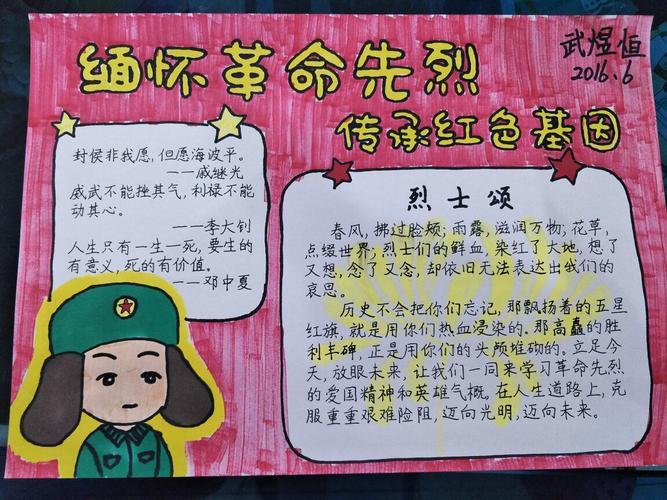 缅怀革命先烈
武煜恒
2016.6
传承红色基因
封侯非我愿，但愿海波平。
——戚继光
威武不能挫其气，利禄不能
动其心。
——李大钊
人生只有一生一死，要生的
有意义，死的有价值。
——邓中夏
烈士颂
春风，拂过脸颊；雨露，滋润万物；花草，
点缀世界；烈士们的鲜血，染红了大地，想了
又想，念了又念，却依旧无法表达出我们的
哀思。
历史不会把你们忘记，那飘扬着的五星
红旗，就是用你们热血浸染的。那高矗的胜
利丰碑，正是用你们的头颅堆砌的。立足今
天，放眼未来，让我们一同来学习革命先烈
的爱国精神和英雄气概。在人生道路上，克
服重重艰难险阻，迈向光明，迈向未来。